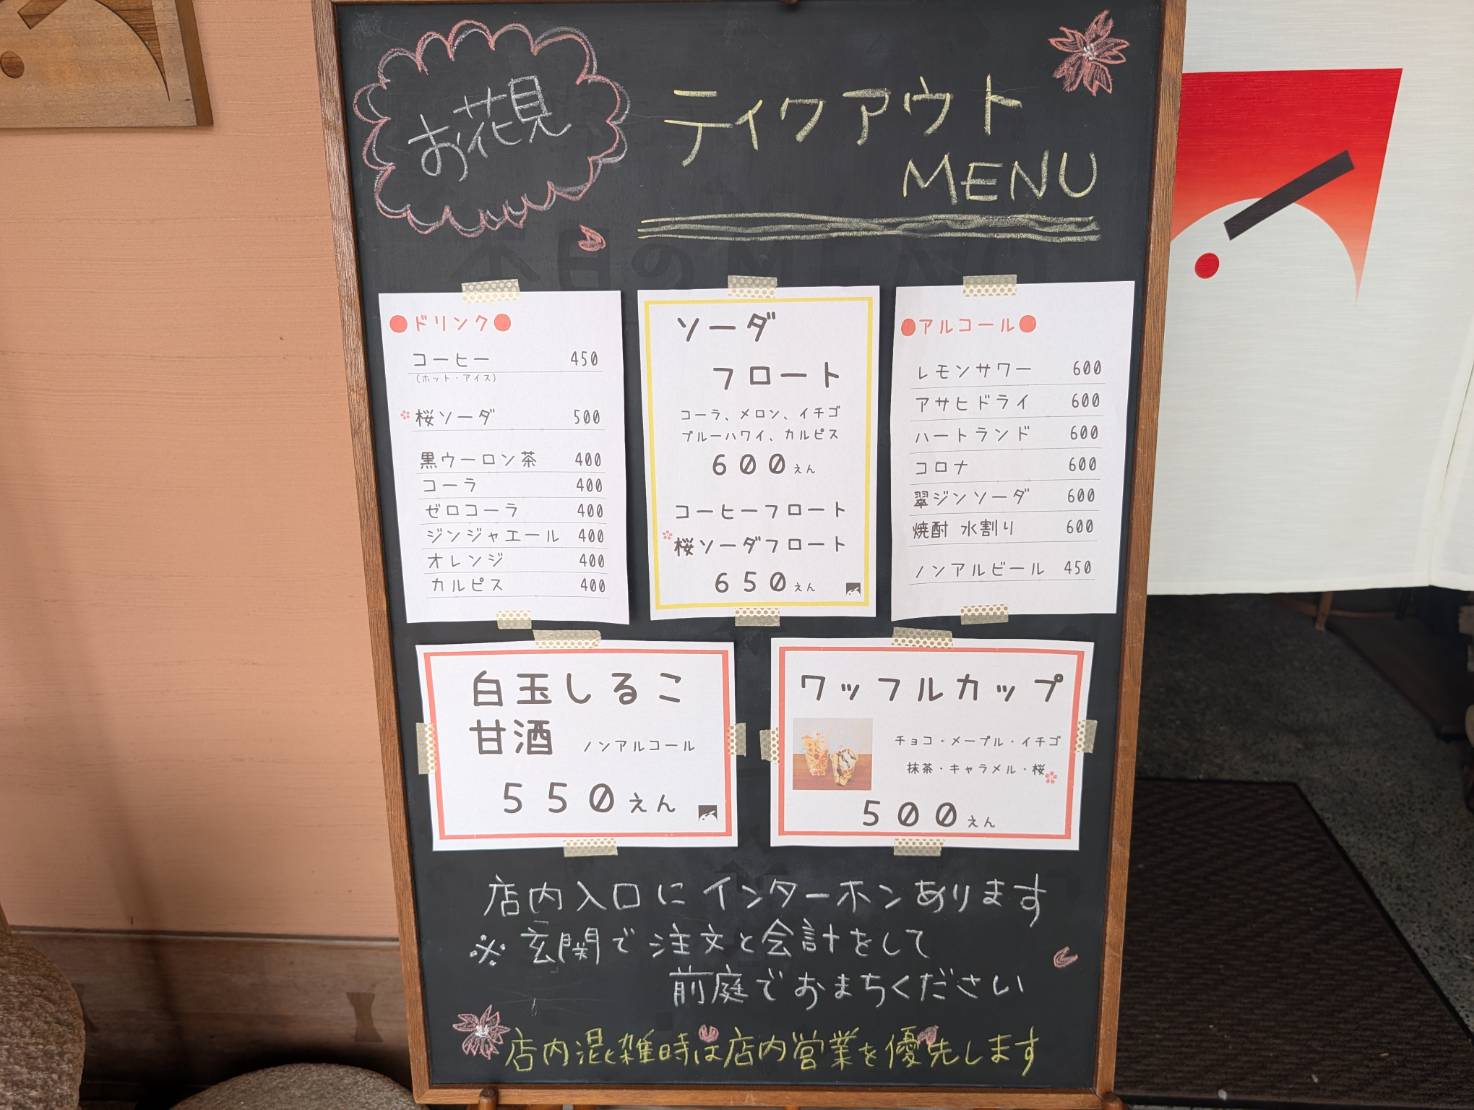 お花見
ティクアウト
MENU
●ドリンク●
コーヒー 450
(ホット・アイス)
桜ソーダ 500
黒ウーロン茶 400
コーラ 400
ゼロコーラ 400
ジンジャエール 400
オレンジ 400
カルピス 400
ソーダ
フロート
コーラ、メロン、イチゴ
ブルーハワイ、カルピス
600えん
コーヒーフロート
桜ソーダフロート
650えん
●アルコール●
レモンサワー 600
アサヒドライ 600
ハートランド 600
コロナ 600
翠ジンソーダ 600
焼酎 水割り 600
ノンアルビール 450
白玉しるこ
甘酒 ノンアルコール
550えん
ワッフルカップ
チョコ・メープル・イチゴ
抹茶・キャラメル・桜
500えん
店内入口にインターホンあります
※玄関で注文と会計をして
前庭でおまちください
店内混雑時は店内営業を優先します